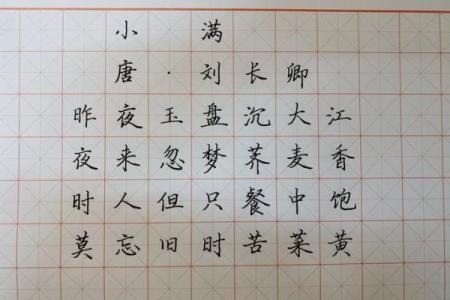 小满
唐·刘长卿
昨夜玉盘沉大江
夜来忽梦荞麦香
时人但只餐中饱
莫忘旧时苦菜黄